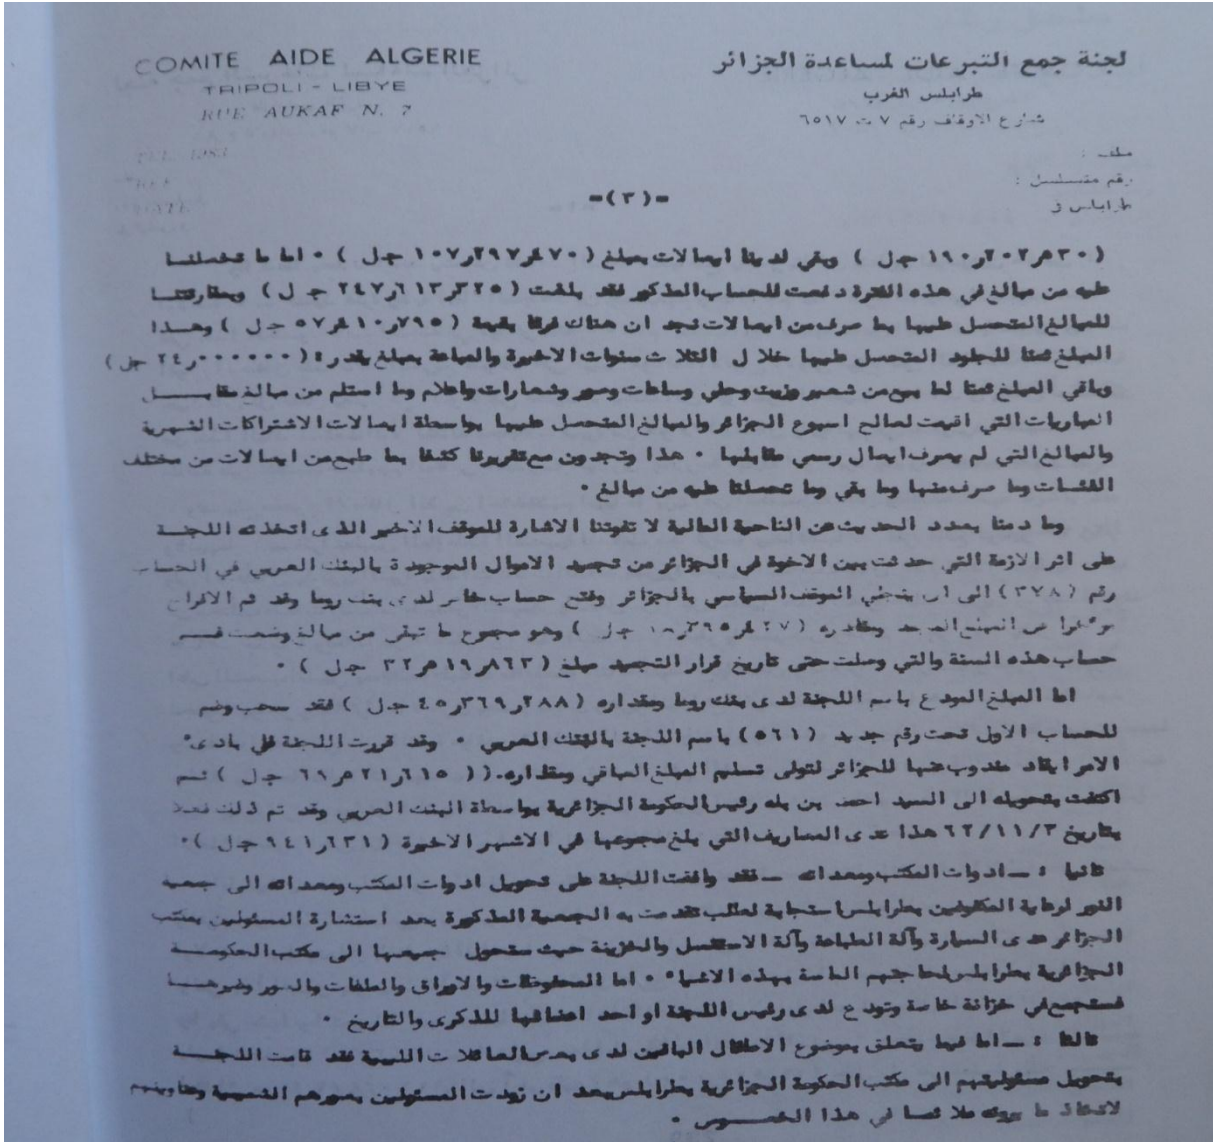 COMITE AIDE ALGERIE
TRIPOLI - LIBYE
RUE AUKAF N. 7
لجنة جمع التبرعات لمساعدة الجزائر
طرابلس الغرب
شارع الاوقاف رقم ٧ ت ٦٥١٧
ملف :
رقم متسلسل :
طرابلس في
-(٣)-
ويقي لدينا ايصالات بمبلغ ( ٤٧٠ر٢٩٧ر١٠٧ ج.ل ) ٠ اما ما تحصلنا
عليه من مبالغ في هذه الفترة دفعت للحساب المذكور فقد بلغت ( ٣٢٥ر٦١٣ر٢٤٧ ج ل ) وبمقارنتنا
للمبالغ المتحصل عليها بما صرف من ايصالات نجد ان هناك فرقا بقيمة ( ٧٩٥ر٤١٠ر٥٧ ج ل ) وهذا
المبلغ ثمنا للجلود المتحصل عليها خلال الثلاث سنوات الاخيرة والمباعة بمبلغ يقدر : ( ٠٠٠ر٠٠٠ر٢٤ ج ل )
وباقي المبلغ ثمنا لما بيع من شعير وزيت وحلي وساعات وصور وشعارات واعلام وما استلم من مبالغ مقابــل
المباريات التي اقيمت لصالح اسبوع الجزائر والمبالغ المتحصل عليها بواسطة ايصالات الاشتراكات الشهرية
والمبالغ التي لم يصرف ايصال رسمي مقابلها ٠ هذا وتجدون مع تقريرنا كشفا بما طبع من ايصالات من مختلف
الفئات وما صرف منها وما بقي وما تحصلنا عليه من مبالغ ٠
وما دمنا بصدد الحديث عن الناحية المالية لا تفوتنا الاشارة للموقف الاخير الذى اتخذته اللجنــة
على اثر الازمة التي حدثت بين الاخوة في الجزائر من تجميد الاموال الموجودة بالبنك العربي في الحساب
رقم (٣٧٨) الى ان ينجلي الموقف السياسي بالجزائر وفتح حساب خاص لدى بنك روما وقد تم الافراج
وهو مجموع ما تبقى من مبالغ وضعت فــي
حساب هذه السنة والتي وصلت حتى تاريخ قرار التجميد مبلغ ( ٨٦٣ر٥١٩ر٣٢ ج.ل ) ٠
اما المبلغ المودع باسم اللجنة لدى بنك روما ومقداره ( ٢٨٨ر٣٦٩ر٤٥ ج.ل ) فقد سحب وضم
للحساب الاول تحت رقم جديد (٥٦١) باسم اللجنة بالبنك العربي ٠ وقد قررت اللجنة في بادىء
الامر ايفاد مندوب عنها للجزائر لتولى تسليم المبلغ الباقي ومقداره ( ٦١٥ر٥٢١ر٦٩ ج.ل ) ثــم
اكتفت بتحويله الى السيد احمد بن بله رئيس الحكومة الجزائرية بواسطة البنك العربي وقد تم ذلك فعلا
بتاريخ ٦٢/١١/٣ هذا عدى المصاريف التي بلغ مجموعها في الاشهر الاخيرة ( ٦٣١ر٩٤١ ج.ل ) ٠
ثانيا : ـ ادوات المكتب ومعداته ـ فقد وافقت اللجنة على تحويل ادوات المكتب ومعداته الى جمعية
النور لرعاية المكفوفين بطرابلس استجابة لطلب تقدمت به الجمعية المذكورة بعد استشارة المسئولين بمكتب
الجزائر عدى السيارة وآلة الطباعة وآلة الاستنسل والخزينة حيث ستحول جميعها الى مكتب الحكومــة
الجزائرية بطرابلس لحاجتهم الماسة بهذه الاشياء ٠ اما المحفوظات والاوراق والملفات والصور وغيرهــا
فستجمع في خزانة خاصة وتودع لدى رئيس اللجنة او احد اعضائها للذكرى والتاريخ ٠
ثالثا : ـ اما فيما يتعلق بموضوع الاطفال الباقين لدى بعض العائلات الليبية فقد قامت اللجنــة
بتحويل مسئوليتهم الى مكتب الحكومة الجزائرية بطرابلس بعد ان زودت المسئولين بصورهم الشمسية وعناوينهم
لاتخاذ ما يرونه ملائما في هذا الخصوص ٠